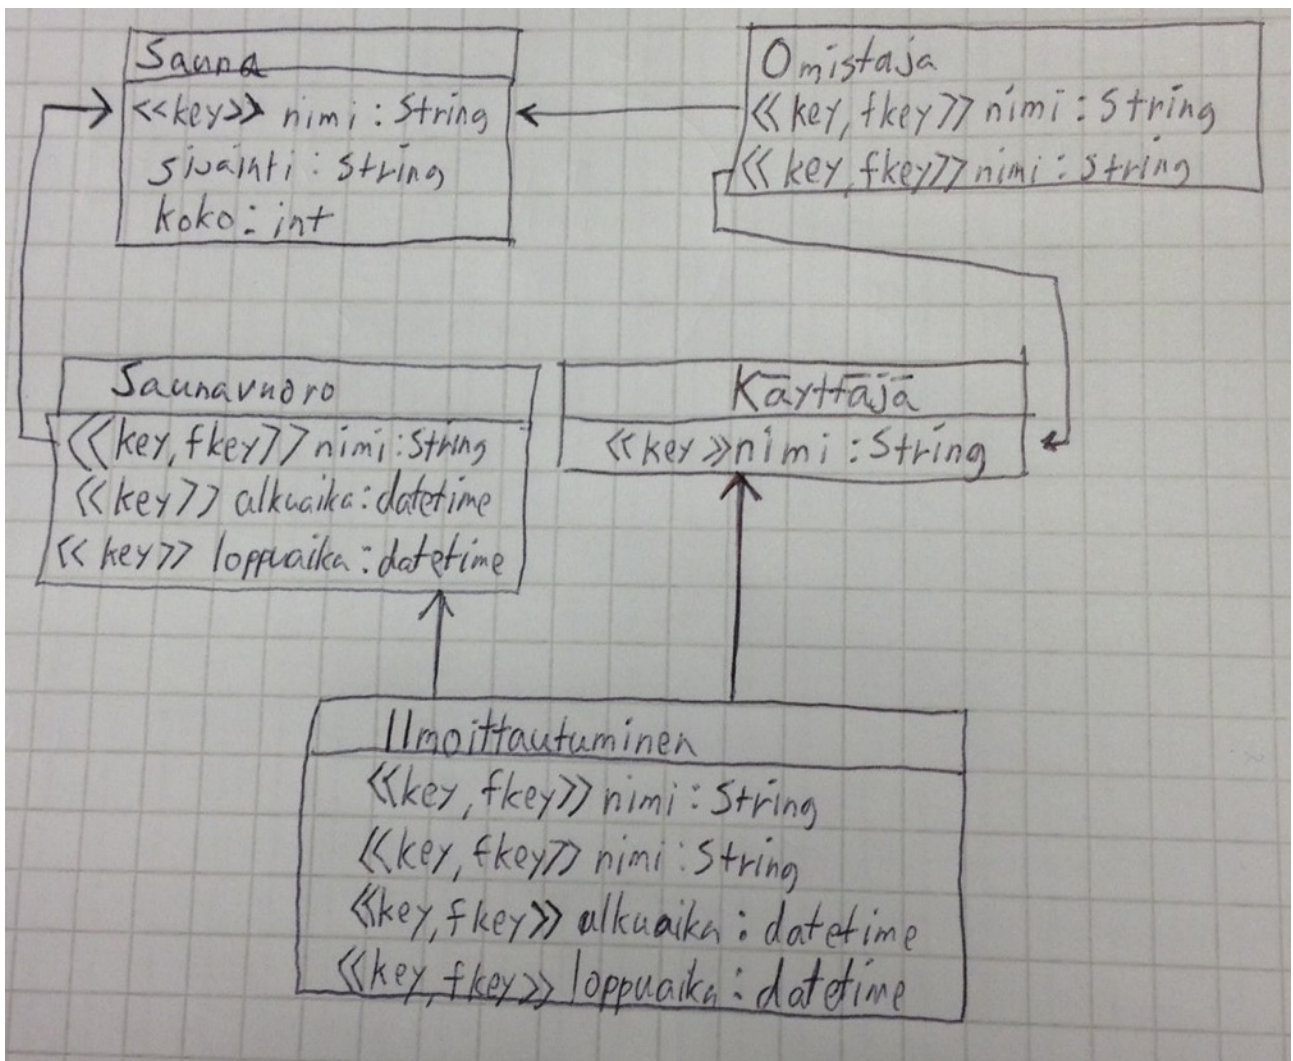 Sauna
<<key>> nimi : String
sivainti : String
koko : int
Omistaja
<<key, fkey>> nimi : String
<<key, fkey>> nimi : String
Saunavuoro
<<key, fkey>> nimi : String
<<key>> alkuaika : datetime
<<key>> loppuaika : datetime
Käyttäjä
<<key>> nimi : String
Ilmoittautuminen
<<key, fkey>> nimi : String
<<key, fkey>> nimi : String
<<key, fkey>> alkuaika : datetime
<<key, fkey>> loppuaika : datetime